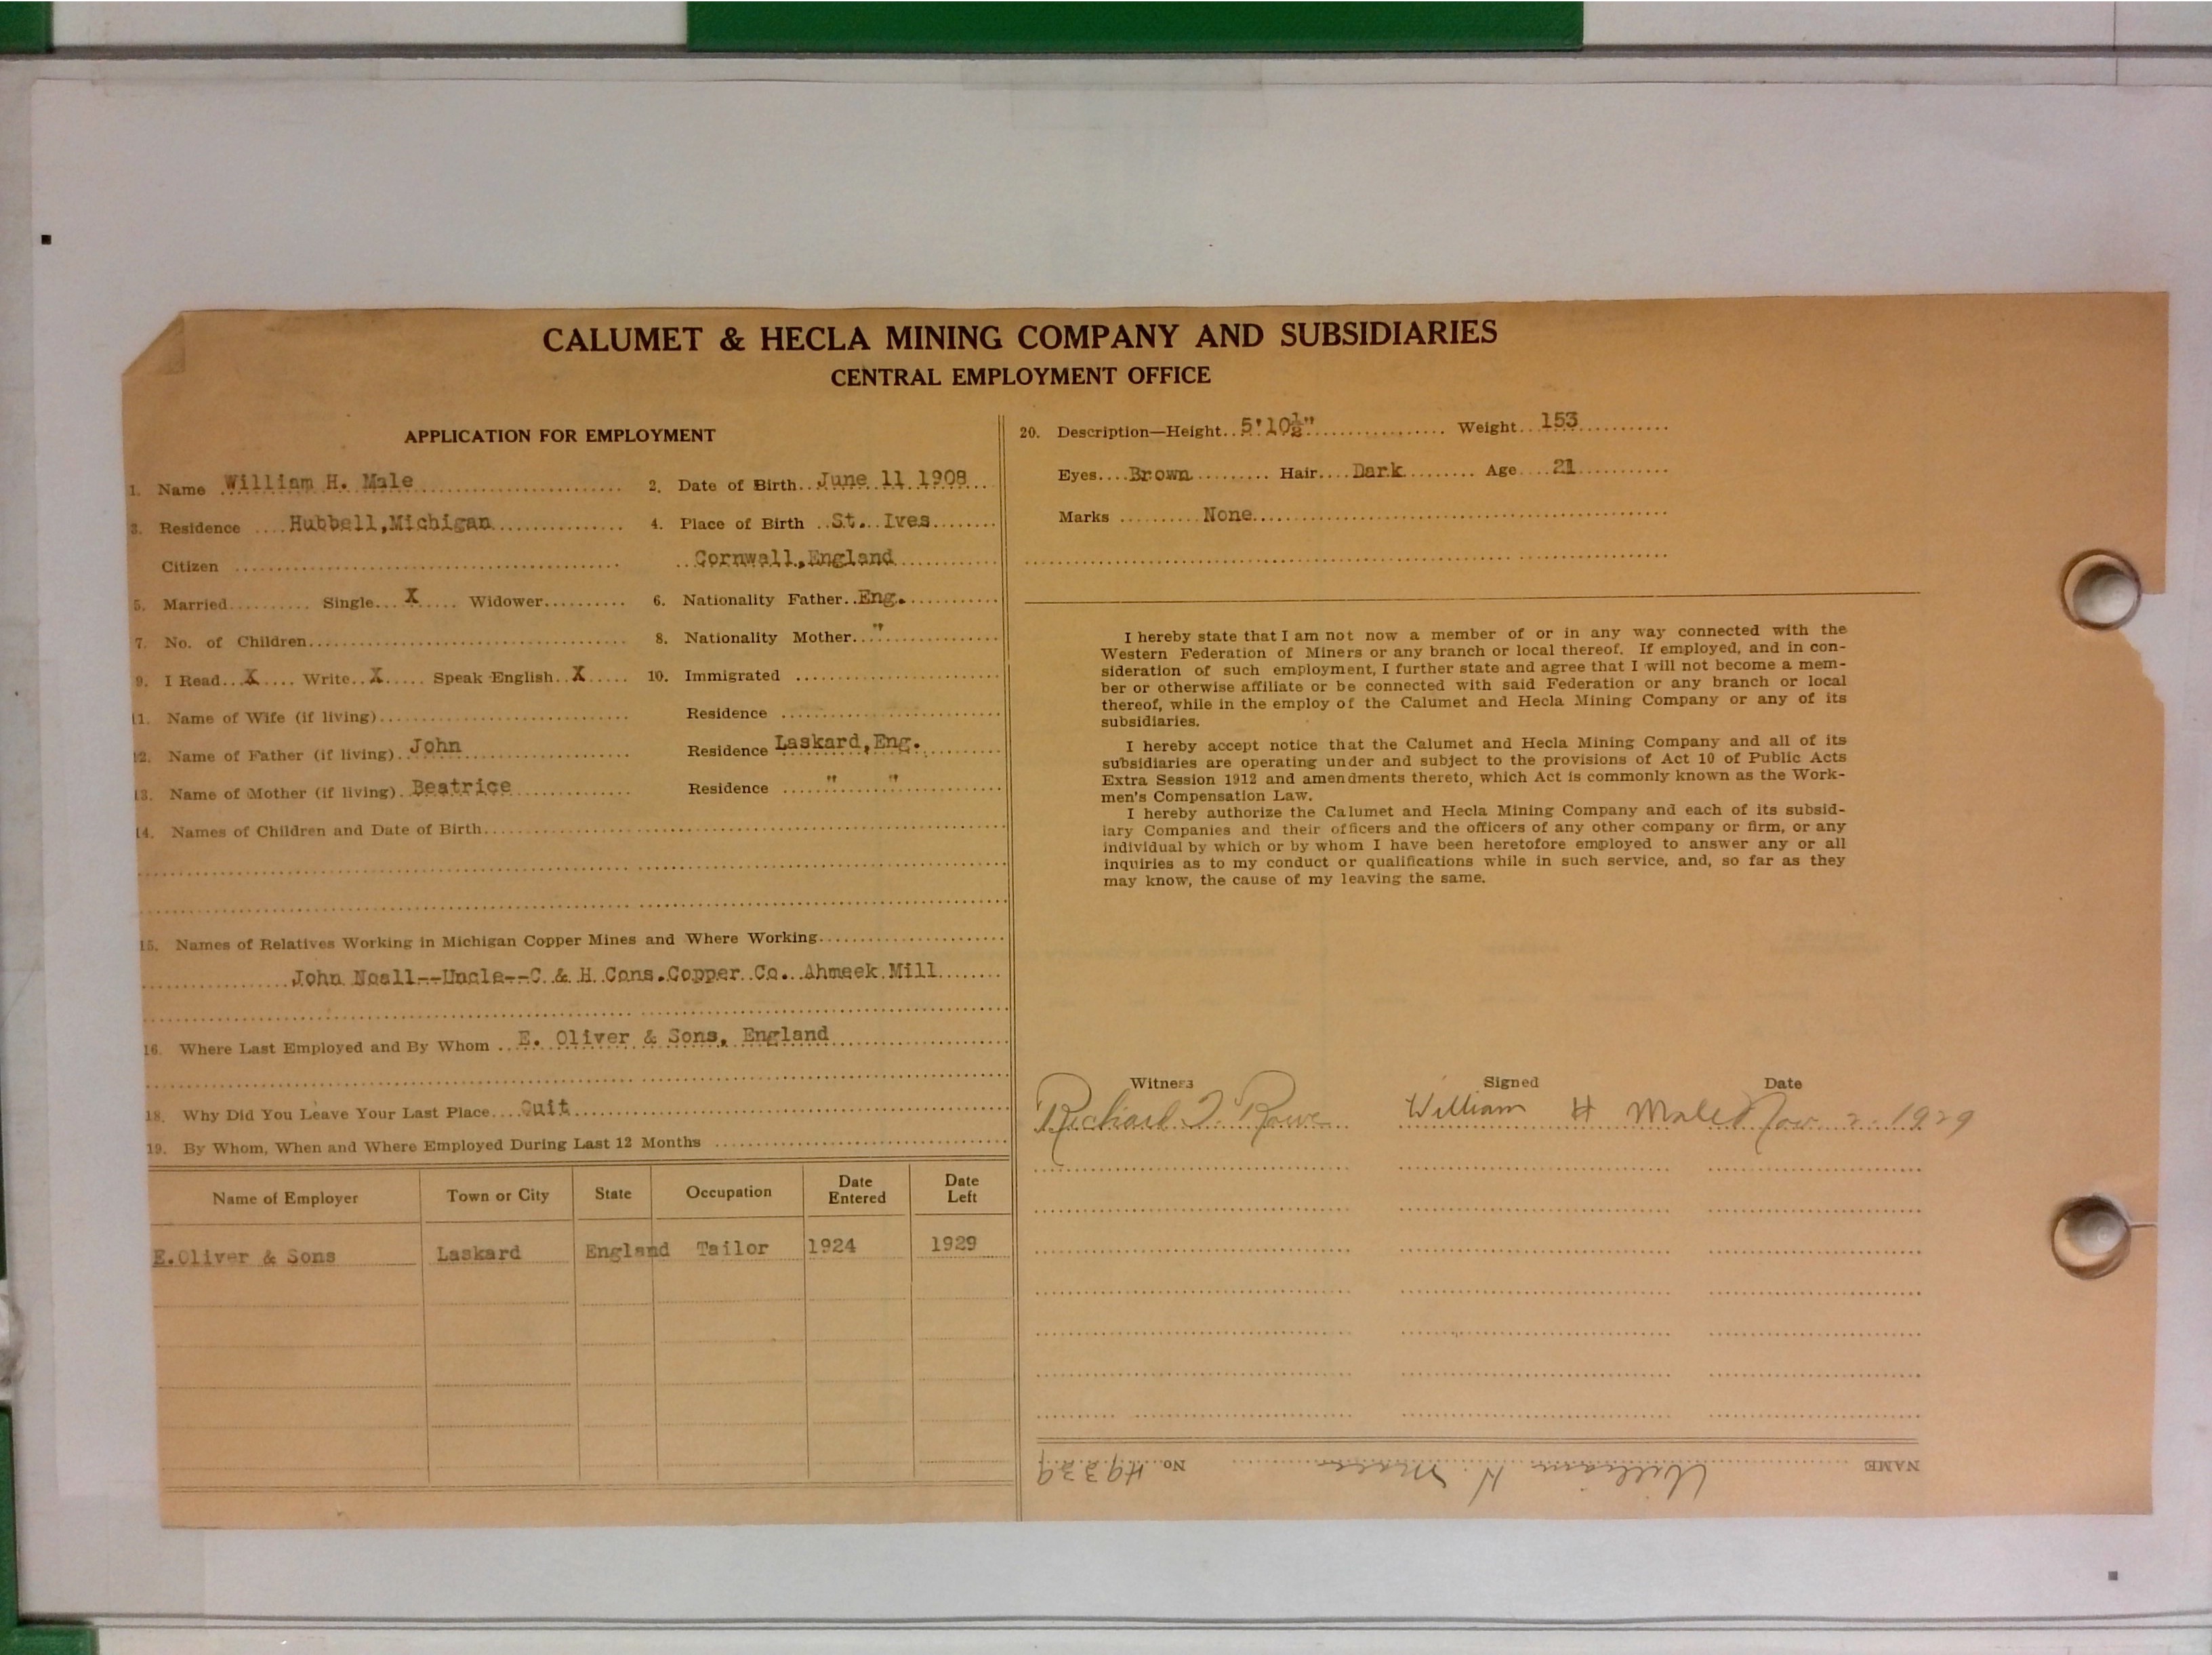 CALUMET & HECLA MINING COMPANY AND SUBSIDIARIES
CENTRAL EMPLOYMENT OFFICE
APPLICATION FOR EMPLOYMENT
1. Name William H. Male 2. Date of Birth June 11 1908
3. Residence Hubbell,Michigan 4. Place of Birth St. Ives
Citizen Cornwall,England
5. Married Single X Widower 6. Nationality Father Eng.
7. No. of Children 8. Nationality Mother "
9. I Read X Write X Speak English X 10. Immigrated
11. Name of Wife (if living) Residence
12. Name of Father (if living) John Residence Laskard,Eng.
13. Name of Mother (if living) Beatrice Residence " "
14. Names of Children and Date of Birth
15. Names of Relatives Working in Michigan Copper Mines and Where Working
John Noall--Uncle--C & H Cons.Copper Co. Ahmeek Mill
16. Where Last Employed and By Whom E. Oliver & Sons, England
18. Why Did You Leave Your Last Place Quit
19. By Whom, When and Where Employed During Last 12 Months
Name of Employer Town or City State Occupation Date Entered Date Left
E.Oliver & Sons Laskard England Tailor 1924 1929
20. Description—Height 5'10½" Weight 153
Eyes Brown Hair Dark Age 21
Marks None
I hereby state that I am not now a member of or in any way connected with the
Western Federation of Miners or any branch or local thereof. If employed, and in con-
sideration of such employment, I further state and agree that I will not become a mem-
ber or otherwise affiliate or be connected with said Federation or any branch or local
thereof, while in the employ of the Calumet and Hecla Mining Company or any of its
subsidiaries.
I hereby accept notice that the Calumet and Hecla Mining Company and all of its
subsidiaries are operating under and subject to the provisions of Act 10 of Public Acts
Extra Session 1912 and amendments thereto, which Act is commonly known as the Work-
men's Compensation Law.
I hereby authorize the Calumet and Hecla Mining Company and each of its subsid-
iary Companies and their officers and the officers of any other company or firm, or any
individual by which or by whom I have been heretofore employed to answer any or all
inquiries as to my conduct or qualifications while in such service, and, so far as they
may know, the cause of my leaving the same.
Witness Signed Date
Richard J. Rowe William H Male Nov 2. 1929
NAME William H. Male No. 49339